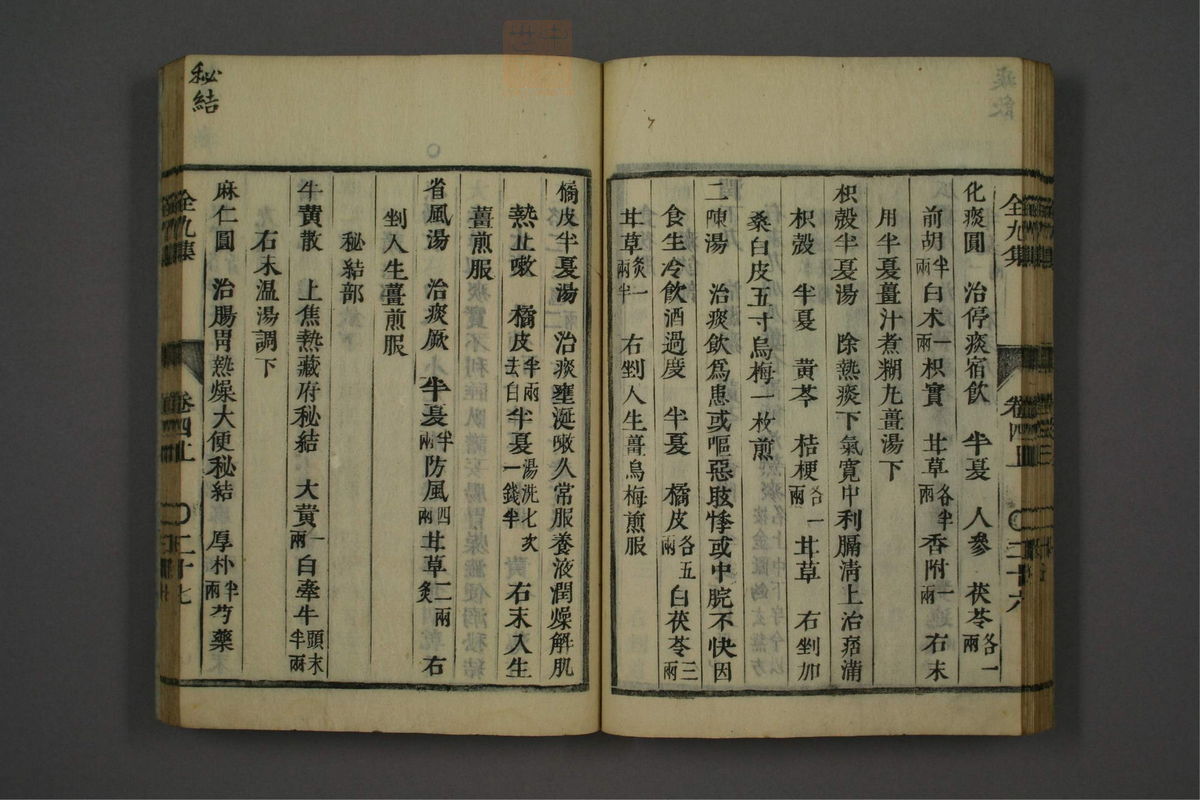 化痰圓　治停痰宿飲　半夏　人參　茯苓各一兩
前胡半兩白朮一兩枳實　甘草各半兩香附一兩　右末
用半夏薑汁煮糊丸薑湯下
枳殼半夏湯　除熱痰下氣寬中利膈淸上治痞滿
枳殼　半夏　黃芩　桔梗各一兩　甘草　右剉加
桑白皮五寸烏梅一枚煎
二陳湯　治痰飲爲患或嘔惡眩悸或中脘不快因
食生冷飲酒過度　半夏　橘皮各五兩白茯苓三兩
甘草炙一兩半　右剉入生薑烏梅煎服
全九集　卷四上　〇二十六
橘皮半夏湯　治痰壅涎嗽久常服養液潤燥解肌
熱止嗽　橘皮半兩去白半夏湯洗七次一錢半　右末入生
薑煎服
省風湯　治痰厥　半夏半兩防風四兩甘草二兩炙　右
剉入生薑煎服
秘結部
牛黃散　上焦熱藏府秘結　大黃一兩白牽牛頭末半兩
右末温湯調下
麻仁圓　治腸胃熱燥大便秘結　厚朴半兩芍藥
全九集　卷四上　〇二十七
秘結